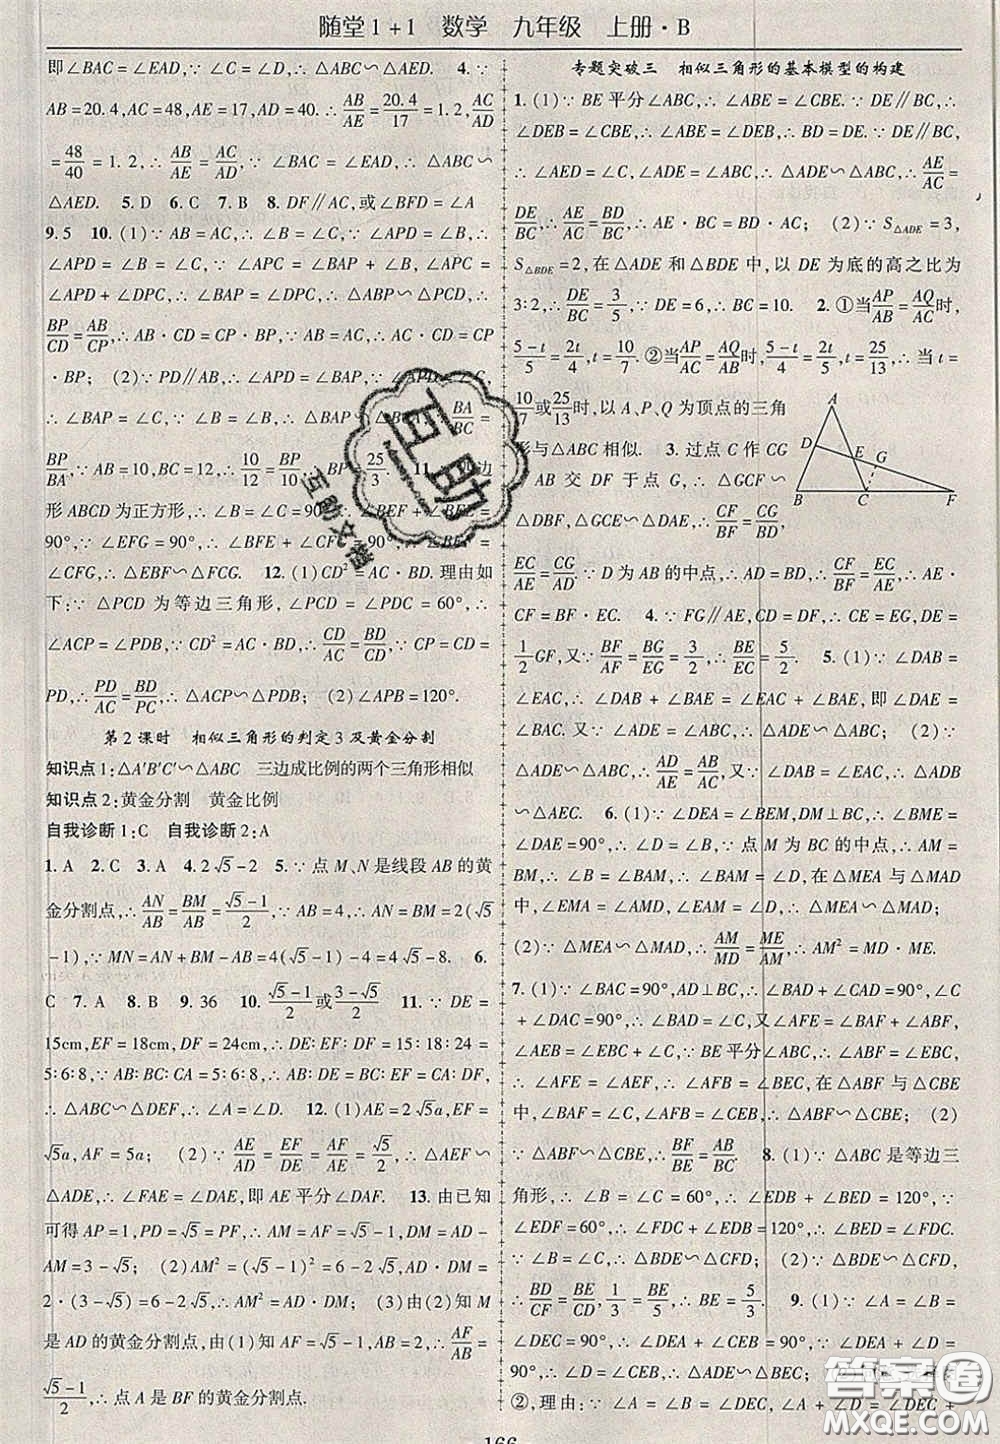 随堂1+1 数学 九年级 上册·B
即∠BAC=∠EAD,∵∠C=∠D,∴△ABC∽△AED. 4.∵
AB=20.4,AC=48,AE=17,AD=40,∴AB/AE=20.4/17=1.2,AC/AD
=48/40=1.2,∴AB/AE=AC/AD.∵∠BAC=∠EAD,∴△ABC∽
△AED. 5.D 6.C 7.B 8.DF∥AC,或∠BFD=∠A
9.5 10.(1)∵AB=AC,∴∠B=∠C,∵∠APD=∠B,∴
∠APD=∠B=∠C,∵∠APC=∠BAP+∠B,∠APC=
∠APD+∠DPC,∴∠BAP=∠DPC,∴△ABP∽△PCD,∴
BP/CD=AB/CP,∴AB·CD=CP·BP,∵AB=AC,∴AC·CD=CP
·BP; (2)∵PD∥AB,∴∠APD=∠BAP,∵∠APD=∠C,
∴∠BAP=∠C,∵∠B=∠B,∴△BAP∽△BCA,∴BA/BC=
BP/BA,∵AB=10,BC=12,∴10/12=BP/10,∴BP=25/3. 11.∵四边
形ABCD为正方形,∴∠B=∠C=90°,∴∠BEF+∠BFE=
90°,∵∠EFG=90°,∴∠BFE+∠CFG=90°,∴∠BEF=
∠CFG,∴△EBF∽△FCG. 12.(1)CD²=AC·BD.理由如
下:∵△PCD为等边三角形,∴∠PCD=∠PDC=60°,∴
∠ACP=∠PDB,∵CD²=AC·BD,∴CD/AC=BD/CD,∵CP=CD=
PD,∴PD/AC=BD/PC,∴△ACP∽△PDB; (2)∠APB=120°.
第2课时 相似三角形的判定3及黄金分割
知识点1:△A′B′C′∽△ABC 三边成比例的两个三角形相似
知识点2:黄金分割 黄金比例
自我诊断1:C 自我诊断2:A
1.A 2.C 3.A 4.2√5-2 5.∵点M、N是线段AB的黄
金分割点,∴AN/AB=BM/AB=(√5-1)/2,∵AB=4,∴AN=BM=2(√5
-1),∵MN=AN+BM-AB=4(√5-1)-4=4√5-8 6.
C 7.A 8.B 9.36 10.(√5-1)/2或(3-√5)/2 11.∵DE=
15cm,EF=18cm,DF=24cm,∴DE∶EF∶DF=15∶18∶24=
5∶6∶8,∵AB∶BC∶CA=5∶6∶8,∴AB∶BC∶CA=DE∶EF∶DF,
∴△ABC∽△DEF,∴∠A=∠D. 12.(1)AE=2√5a,EF=
√5a,AF=5a; (2)∵AE/AD=EF/DE=AF/AE=√5/2,∴△AEF∽
△ADE,∴∠FAE=∠DAE,即AE平分∠DAF. 13.由已知
可得AP=1,PD=√5=PF,∴AM=AF=√5-1,DM=AD-
AM=3-√5; (2)AM²=(√5-1)²=6-2√5,AD·DM=
2·(3-√5)=6-2√5,∴AM²=AD·DM; (3)由(2)知M
是AD的黄金分割点,由(1)知AF=√5-1,AB=2,∴AF/AB=
(√5-1)/2,∴点A是BF的黄金分割点.
专题突破三 相似三角形的基本模型的构建
1.(1)∵BE平分∠ABC,∴∠ABE=∠CBE.∵DE∥BC,∴
∠DEB=∠CBE,∴∠ABE=∠DEB,∴BD=DE.∵DE∥BC,
∴∠AED=∠C,又∵∠A=∠A,∴△ADE∽△ABC,∴AE/AC=
DE/BC,∴AE/AC=BD/BC,∴AE·BC=BD·AC; (2)∵S△ADE=3,
S△BDE=2,在△ADE和△BDE中,以DE为底的高之比为
3∶2,∴DE/BC=3/5,∵DE=6,∴BC=10. 2.①当AP/AB=AQ/AC时,
(5-t)/5=2t/4,t=10/7.②当AP/AC=AQ/AB时,(5-t)/4=2t/5,t=25/13,∴当t=
10/7或25/13时,以A、P、Q为顶点的三角
形与△ABC相似. 3.过点C作CG
∥AB交DF于点G,∴△GCF∽
△DBF,△GCE∽△DAE,∴CF/BF=CG/BD,
EC/AE=CG/AD.∵D为AB的中点,∴AD=BD,∴CF/BF=EC/AE,∴AE·
CF=BF·EC. 4.∵FG∥AE,CD=DF,∴CE=EG,DE=
1/2GF,又∵BF/AF=BG/EG=3/2,∴BE/EC=5/2. 5.(1)∵∠DAB=
∠EAC,∴∠DAB+∠BAE=∠EAC+∠BAE,即∠DAE=
∠BAC.又∵∠ADE=∠ABC,∴△ADE∽△ABC; (2)∵
△ADE∽△ABC,∴AD/AB=AE/AC,∵∠DAB=∠EAC,∴△ADB
∽△AEC. 6.(1)∵∠DEA=∠BEM,DM⊥BC,∴∠BME=
∠DAE=90°,∴∠B=∠D,∵点M为BC的中点,∴AM=
BM,∴∠B=∠MAE,∴∠MAE=∠D,在△MEA与△MAD
中,∠EMA=∠AMD,∠EAM=∠D,∴△MEA∽△MAD;
(2)∵△MEA∽△MAD,∴AM/MD=ME/AM,∴AM²=MD·ME.
7.(1)∵∠BAC=90°,AD⊥BC,∴∠BAD+∠CAD=90°,∠C
+∠DAC=90°,∴∠BAD=∠C,又∠AFE=∠BAF+∠ABF,
∠AEB=∠EBC+∠C;∵BE平分∠ABC,∴∠ABF=∠EBC,
∴∠AFE=∠AEF,∴∠AFB=∠BEC,在△ABF与△CBE
中,∠BAF=∠C,∠AFB=∠CEB,∴△ABF∽△CBE; (2)
∵△ABF∽△CBE,∴BF/BE=AB/BC. 8.(1)∵△ABC是等边三
角形,∴∠B=∠C=60°,∴∠EDB+∠BED=120°,∵
∠EDF=60°,∴∠FDC+∠EDB=120°,∴∠BED=∠FDC.
∵∠B=∠C,∴△BDE∽△CFD; (2)∵△BDE∽△CFD,
∴BD/CF=BE/CD,∴1/3=BE/5,∴BE=5/3. 9.(1)∵∠A=∠B=
∠DEC=90°,∴∠DEA+∠CEB=90°,∵∠DEA+∠D=
90°,∴∠D=∠CEB,∴△ADE∽△BEC;
②,理由:∵∠A=∠B=∠DEC=
A
D
E
G
B
C
F
互助
互助文档
答案圈
MXQE.COM
166